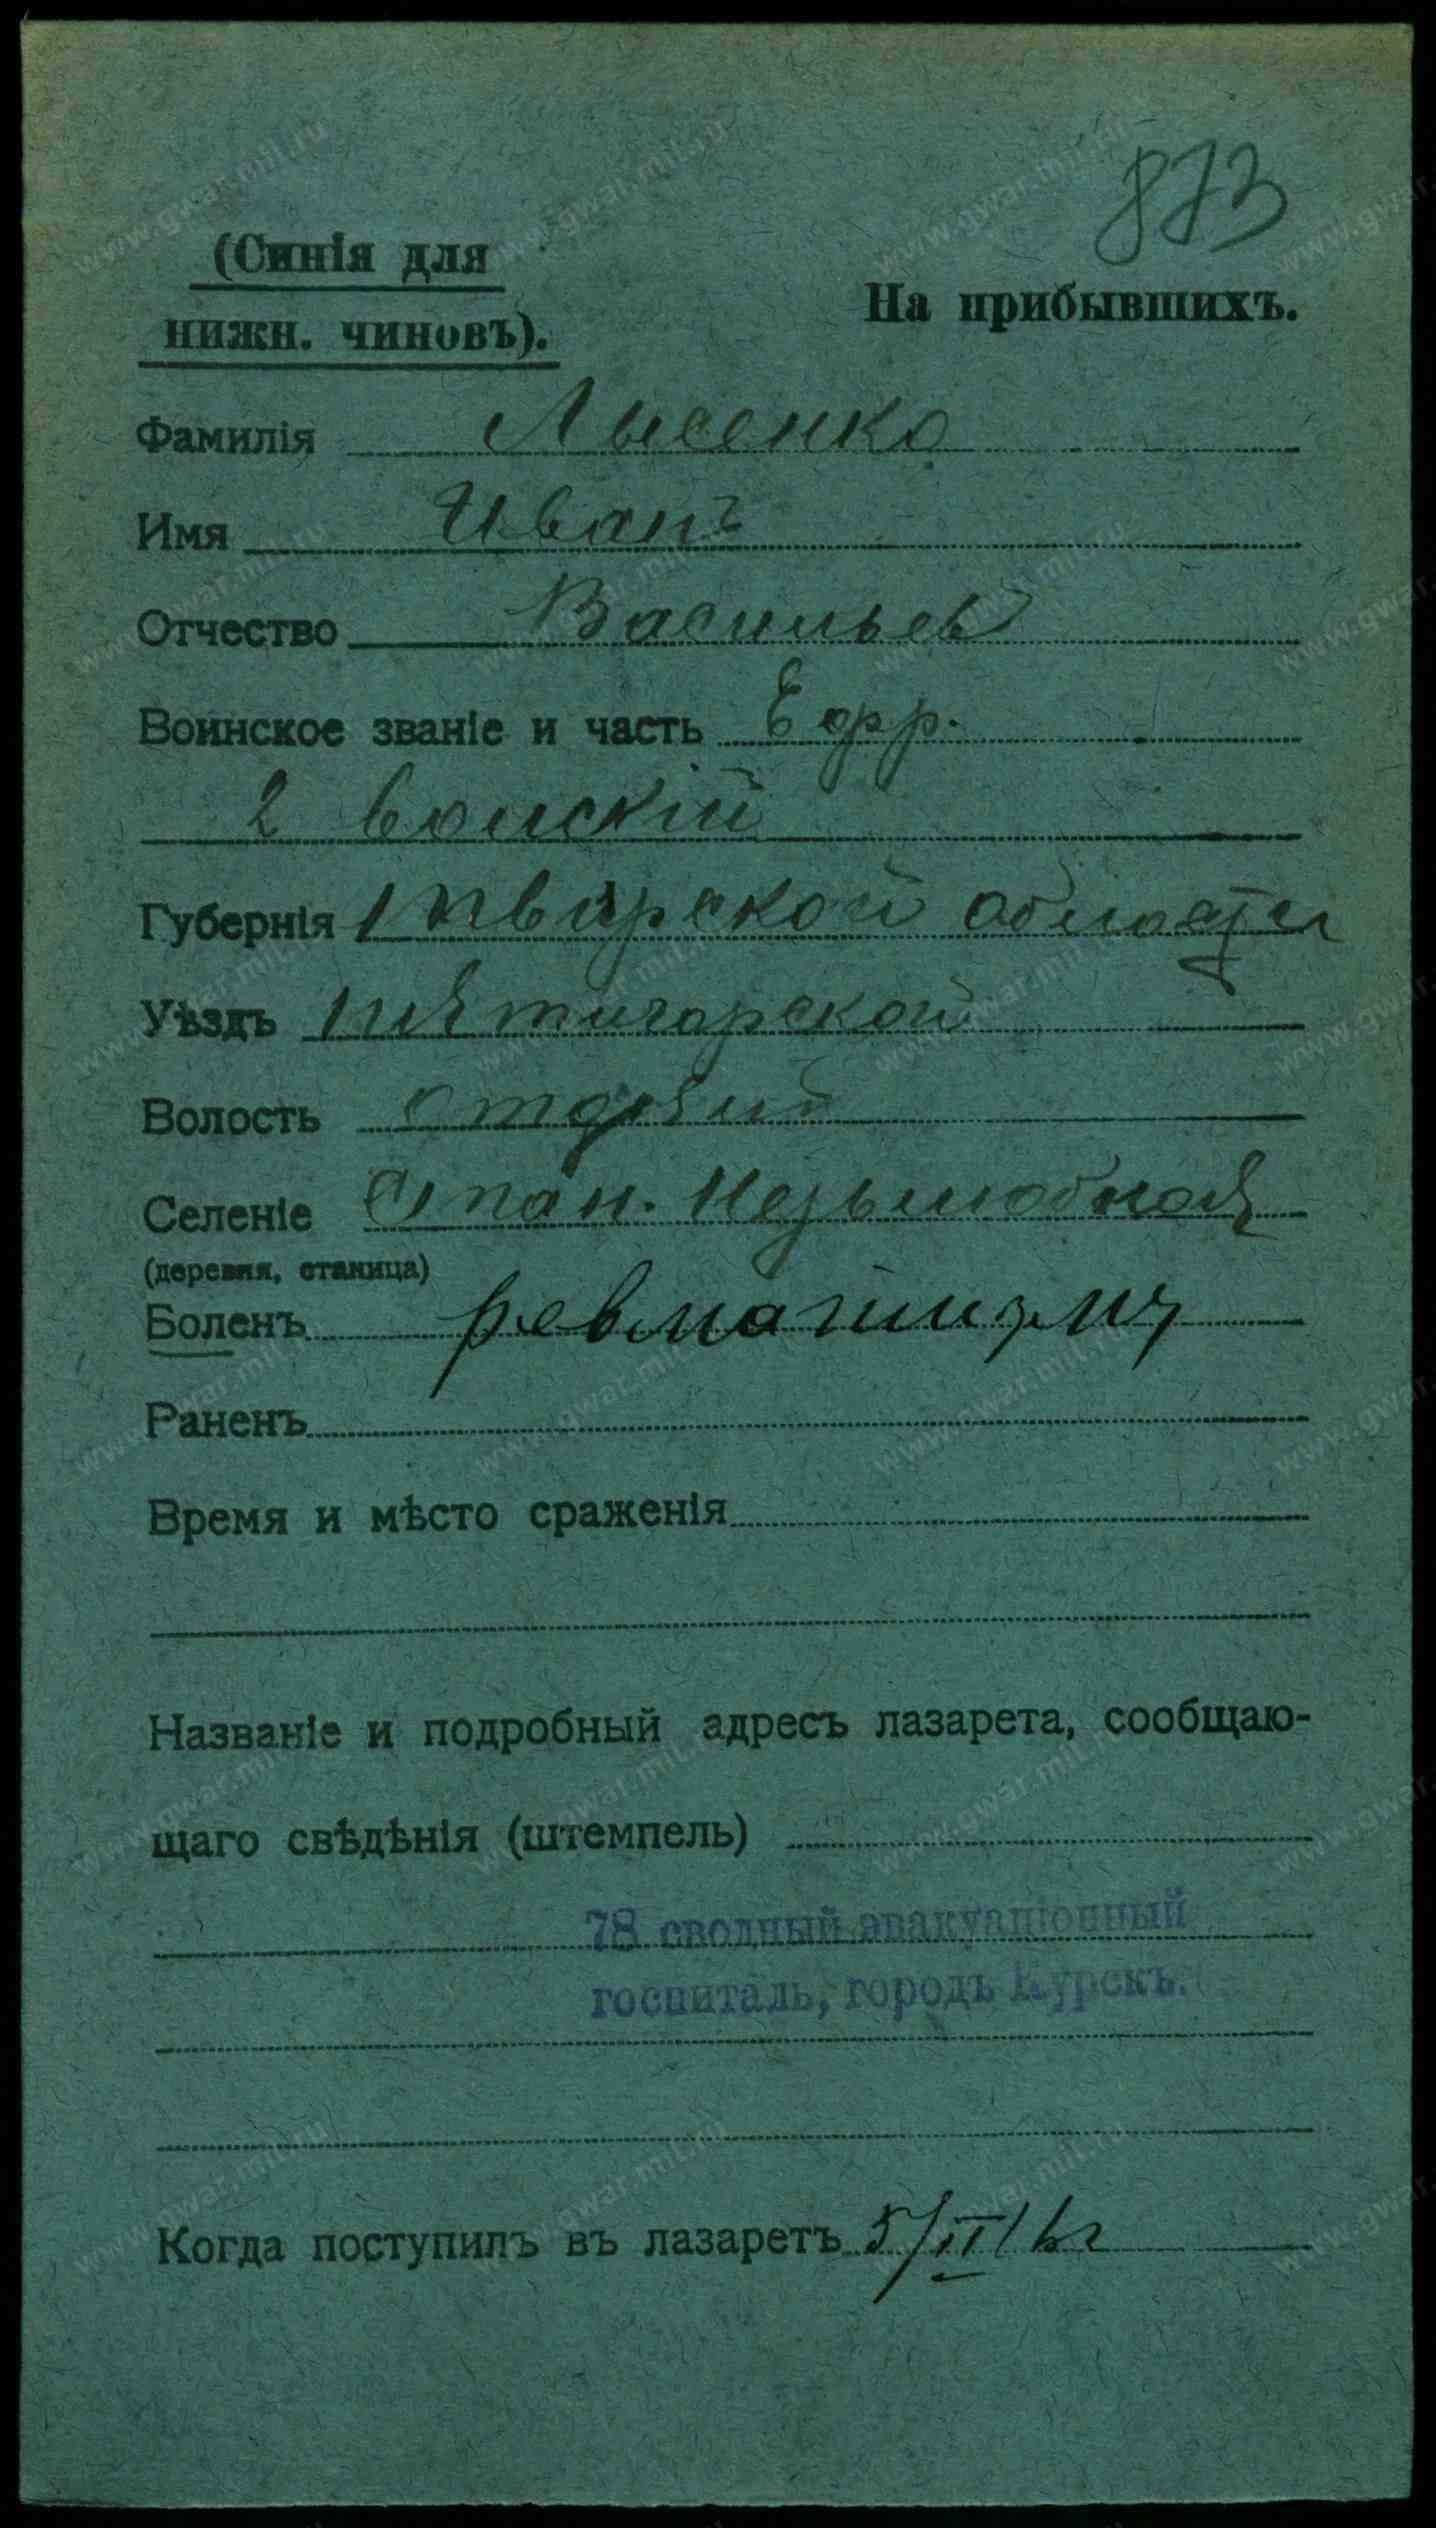 873
(Синія для
нижн. чиновъ).
На прибывшихъ.
Фамилія Лысенко
Имя Иванъ
Отчество Васильев
Воинское званіе и часть Ефр.
2
Губернія Тверской области
Уѣздъ Пятигорской
Волость отдѣлъ
Селеніе Стан. Незлобной
(деревня, станица)
Боленъ ревматизмъ
Раненъ
Время и мѣсто сраженія
Названіе и подробный адресъ лазарета, сообщаю-
щаго свѣдѣнія (штемпель)
78 сводный эвакуаціонный
госпиталь, городъ Курскъ.
Когда поступилъ въ лазаретъ 5/II 16 г
www.gwar.mil.ru